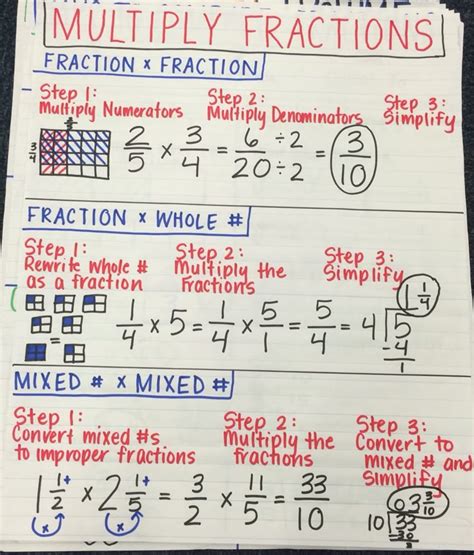 MULTIPLY FRACTIONS
FRACTION x FRACTION
Step 1: Multiply Numerators
Step 2: Multiply Denominators
Step 3: Simplify
2/5 x 3/4 = 6/20 ÷2/÷2 = 3/10
2/5
3/4
FRACTION x WHOLE #
Step 1: Rewrite whole # as a fraction
Step 2: Multiply the fractions
Step 3: Simplify
1/4 x 5 = 1/4 x 5/1 = 5/4 = 4)5
1 1/4
-4
1
=
MIXED # x MIXED #
Step 1: Convert mixed #s to improper fractions
Step 2: Multiply the fractions
Step 3: Convert to mixed # and simplify
1 1/2 x 2 1/5 = 3/2 x 11/5 = 33/10
+ +
x x
03 3/10
10)33
-30
3